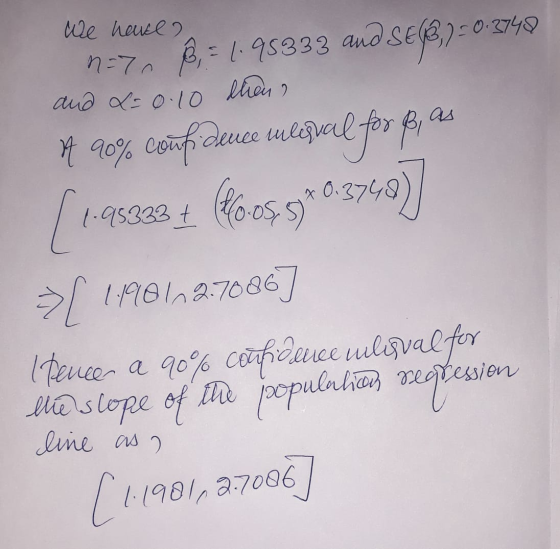 We have,
n=7, β̂₁ = 1.95333 and SE(β̂₁) = 0.3748
and α = 0.10 then,
A 90% confidence interval for β₁ as
[1.95333 ± (t(0.05, 5) × 0.3748)]
⇒ [1.1981, 2.7086]
Hence a 90% confidence interval for
the slope of the population regression
line as,
[1.1981, 2.7086]